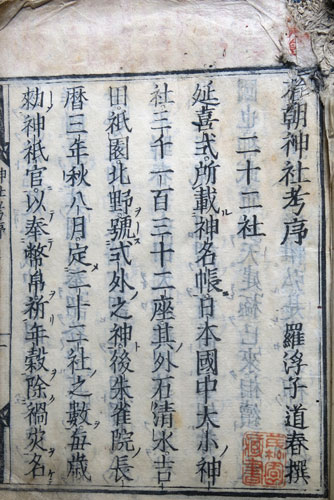 朝神社考序 羅浮子道春撰
二十二社
延喜式所載神名帳日本國中大小神
社三千一百三十二座其外石清水吉
田祇園北野號式外之神後朱雀院長
暦三年秋八月定二十二社之數每歳
勅神祇官以奉幣帛祈年穀除禍灾名
神社考序